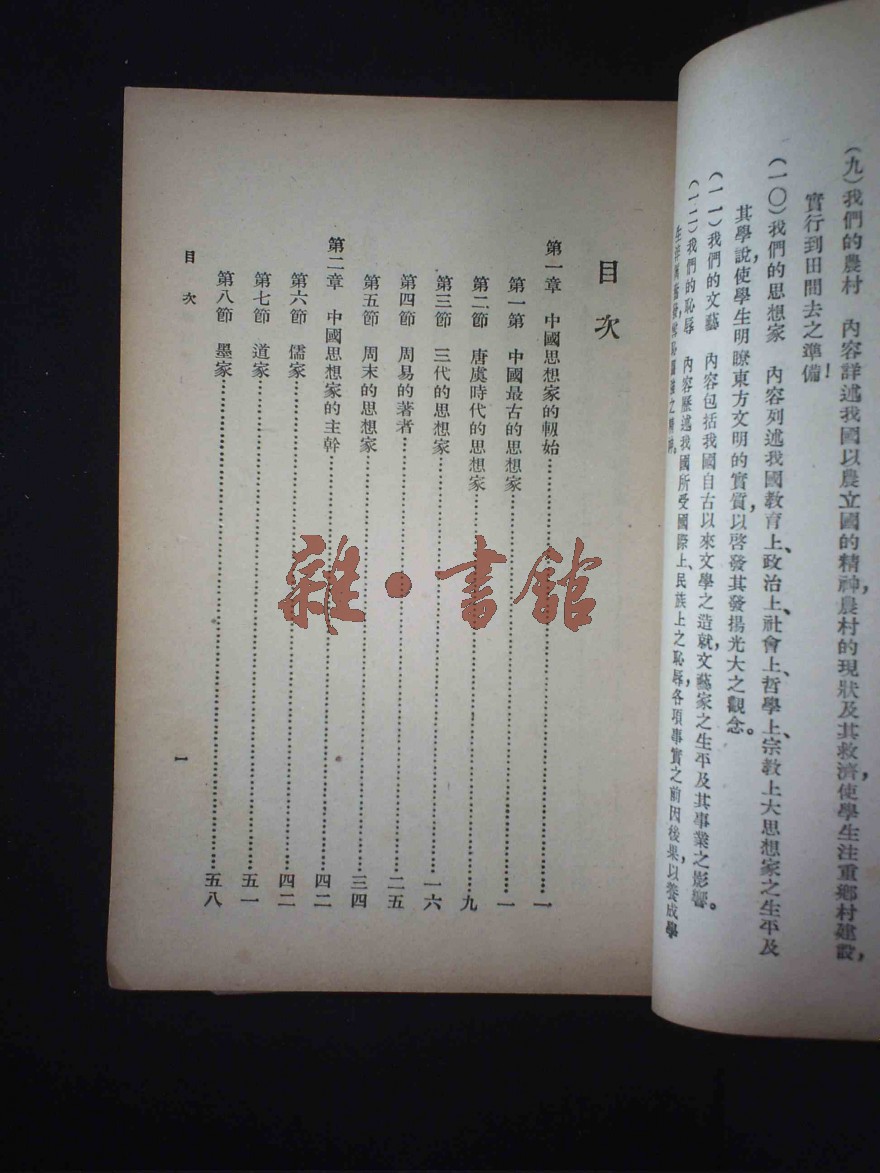 (九)我們的農村　內容詳述我國以農立國的精神，農村的現狀及其救濟，使學生注重鄉村建設，
實行到田間去之準備！
(一〇)我們的思想家　內容列述我國教育上、政治上、社會上、哲學上、宗教上大思想家之生平及
其學說，使學生明瞭東方文明的實質，以啓發其發揚光大之觀念。
(一一)我們的文藝　內容包括我國自古以來文學之造就，文藝家之生平及其事業之影響。
(一二)我們的恥辱　內容歷述我國所受國際上、民族上之恥辱，各項事實之前因後果，以養成學
之精神。
目次
第一章　中國思想家的軔始……一
第一第　中國最古的思想家……一
第二節　唐虞時代的思想家……九
第三節　三代的思想家……一六
第四節　周易的著者……二五
第五節　周末的思想家……三四
第二章　中國思想家的主幹……四二
第六節　儒家……四二
第七節　道家……五一
第八節　墨家……五八
目次
一
雜·書館